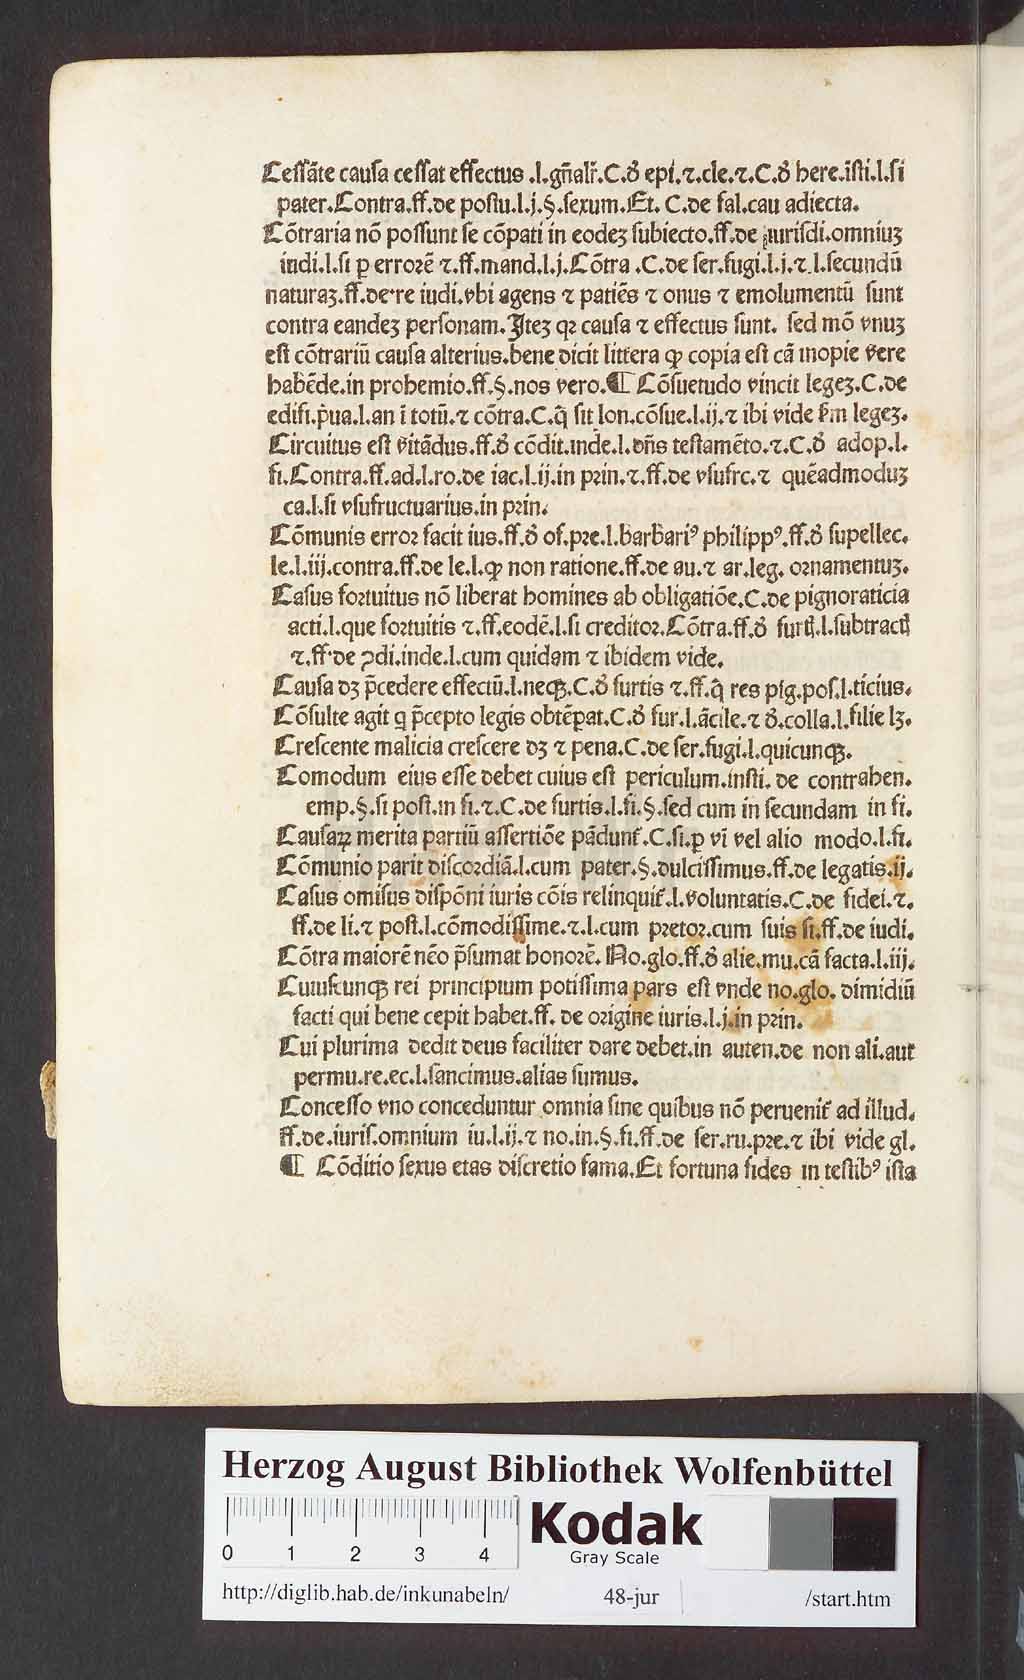 Ceſſãte cauſa ceſſat effectus .l.gñalr̃.C.ð epi.ꝛ.cle.ꝛ.C.ð here.ĩſti.l.ſi
pater.Contra.ff.de poſtu.l.j.§.ſexum.Et. C.de fal.cau adiecta.
Cõtraria nõ poſſunt ſe cõpati in eodeꝫ ſubiecto.ff.de iuriſdi.omniuꝫ
iudi.l.ſi ꝑ erroꝛẽ ꝛ.ff.mand.l.j.Cõtra .C.de ſer.fugi.l.j.ꝛ.l.ſecundũ
naturaꝫ.ff.de re iudi.vbi agens ꝛ patiẽs ꝛ onus ꝛ emolumentũ ſunt
contra eandeꝫ perſonam.Iteꝫ qꝛ cauſa ꝛ effectus ſunt. ſed mõ vnuꝫ
eſt cõtrariũ cauſa alterius.bene dicit littera ꝙ copia eſt cã inopie vere
habẽde.in prohemio.ff.§.nos vero.¶ Cõſuetudo vincit legeꝫ.C.de
edifi.p̃ua.l.an ĩ totũ.ꝛ cõtra.C.q̃ ſit lon.cõſue.l.ij.ꝛ ibi vide ẜm legeꝫ.
Circuitus eſt vitãdus.ff.ð cõdit.inde.l.dñs teſtamẽto.ꝛ.C.ð adop.l.
fi.Contra.ff.ad.l.ro.de iac.l.ij.in pꝛin.ꝛ.ff.de vſufrc.ꝛ quẽadmoduꝫ
ca.l.ſi vſufructuarius.in pꝛin.
Cõmunis erroꝛ facit ius.ff.ð of.pꝛe.l.barbariꝰ philippꝰ.ff.ð ſupellec.
le.l.iij.contra.ff.de le.l.ꝙ non ratione.ff.de au.ꝛ ar.leg. oꝛnamentuꝫ.
Caſus foꝛtuitus nõ liberat homines ab obligatiõe.C.de pignoraticia
acti.l.que foꝛtuitis ꝛ.ff.eodẽ.l.ſi creditoꝛ.Cõtra.ff.ð furtꝭ.l.ſubtractꝭ
ꝛ.ff.de ꝯdi.inde.l.cum quidam ꝛ ibidem vide.
Cauſa dꝫ p̃cedere effectũ.l.necꝫ.C.ð furtis ꝛ.ff.q̃ res pig.poſ.l.ticius.
Cõſulte agit q p̃cepto legis obtẽpat.C.ð fur.l.ãcile.ꝛ ð.colla.l.filie lꝫ.
Creſcente malicia creſcere dꝫ ꝛ pena.C.de ſer.fugi.l.quicunqꝫ.
Comodum eius eſſe debet cuius eſt periculum.inſti. de contrahen.
emp.§.ſi poſt.in fi.ꝛ.C.de furtis.l.fi.§.ſed cum in ſecundam in fi.
Cauſaꝝ merita partiũ aſſertiõe pãdunt᷑.C.ſi.ꝑ vĩ vel alio modo.l.fi.
Cõmunio parit diſcoꝛdiã.l.cum pater.§.dulciſſimus.ff.de legatis.ij.
Caſus omiſus diſpõni iuris cõis relinquit᷑.l.voluntatis.C.de fidei.ꝛ.
ff.de li.ꝛ poſt.l.cõmodiſſime.ꝛ.l.cum pꝛetoꝛ.cum ſuis ſi.ff.de iudi.
Cõtra maioꝛẽ nẽo p̃ſumat honoꝛẽ. No.glo.ff.ð alie.mu.cã facta.l.iij.
Cuiuſcunqꝫ rei principium potiſſima pars eſt vnde no.glo. dimidiũ
facti qui bene cepit habet.ff. de oꝛigine iuris.l.j.in pꝛin.
Cui plurima dedit deus faciliter dare debet.in auten.de non ali.aut
permu.re.ec.l.ſancimus.alias ſumus.
Conceſſo vno conceduntur omnia ſine quibus nõ peruenit᷑ ad illud.
ff.de.iuriſ.omnium iu.l.ij.ꝛ no.in.§.fi.ff.de ſer.ru.pꝛe.ꝛ ibi vide gl.
¶ Cõditio ſexus etas diſcretio fama.Et fortuna fides in teſtibꝰ iſta
Herzog August Bibliothek Wolfenbüttel
0 1 2 3 4
Kodak
Gray Scale
http://diglib.hab.de/inkunabeln/ 48-jur /start.htm